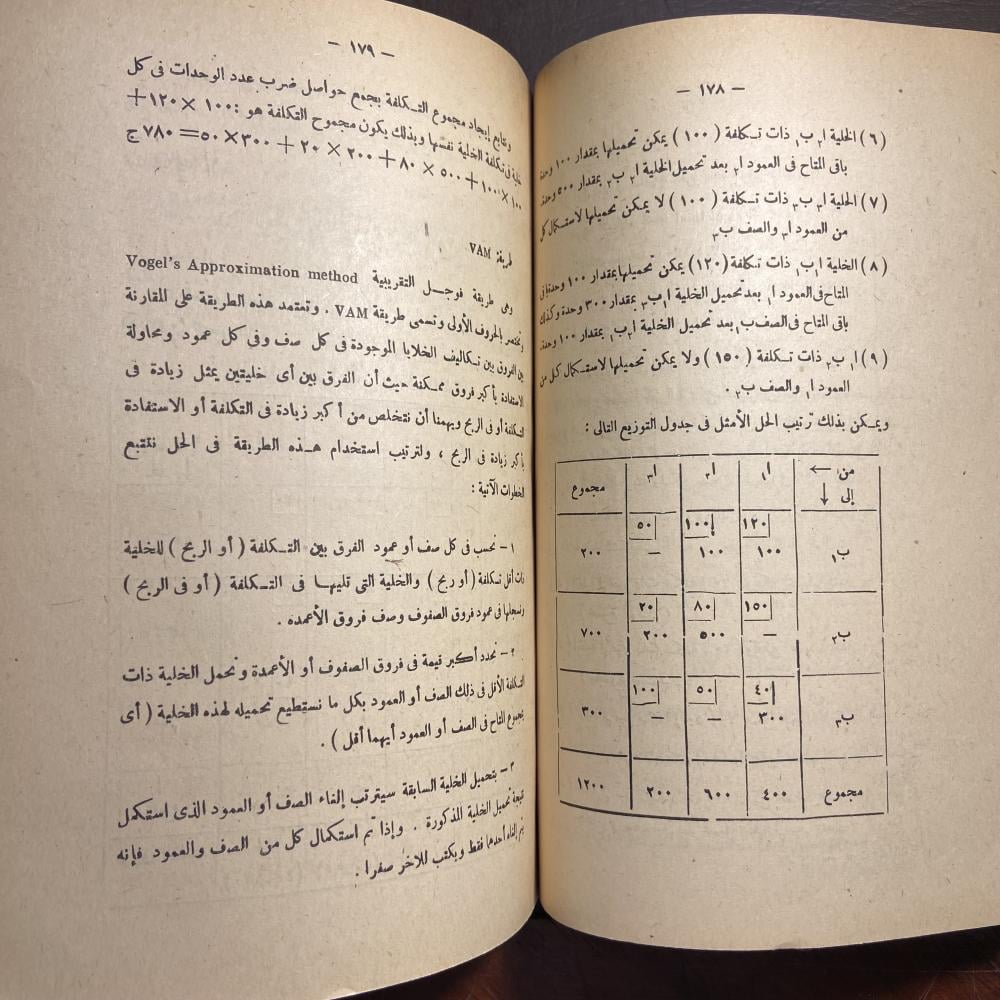 — ١٧٨ —
(٦) الخلية ا٢ ب١ ذات تكلفة (١٠٠) يمكن تحميلها بمقدار ١٠٠ وحدة
باقى المتاح فى العمود ا٢ بعد تحميل الخلية ا٢ ب٢ بمقدار ٥٠٠ وحدة.
(٧) الخلية ا٣ ب٣ ذات تكلفة (١٠٠) لا يمكن تحميلها لاستكمال كل
من العمود ا٣ والصف ب٣
(٨) الخلية ا١ ب١ ذات تكلفة (١٢٠) يمكن تحميلها بمقدار ١٠٠ وحدة باقى
المتاح فى العمود ا١ بعد تحميل الخلية ا١ ب٣ بمقدار ٣٠٠ وحدة وكذلك
باقى المتاح فى الصف ب١ بعد تحميل الخلية ا٢ ب١ بمقدار ١٠٠ وحدة.
(٩) ا١ ب٢ ذات تكلفة (١٥٠) ولا يمكن تحميلها لاستكمال كل من
العمود ا١ والصف ب٢ .
ويمكن بذلك ترتيب الحل الأمثل فى جدول التوزيع التالى :
من ← ا١ ا٢ ا٣ مجموع
إلى ↓
١٢٠ ١٠٠ ٥٠
ب١ ١٠٠ ١٠٠ — ٢٠٠
١٥٠ ٨٠ ٢٠
ب٢ — ٥٠٠ ٢٠٠ ٧٠٠
٤٠ ٥٠ ١٠٠
ب٣ ٣٠٠ — — ٣٠٠
مجموع ٤٠٠ ٦٠٠ ٢٠٠ ١٢٠٠
— ١٧٩ —
ونتابع إيجاد مجموع التكلفة بجمع حواصل ضرب عدد الوحدات فى كل
خلية فى تكلفة الخلية نفسها وبذلك يكون مجموح التكلفة هو : ١٠٠ × ١٢٠ +
١٠٠ × ١٠٠ + ٥٠٠ × ٨٠ + ٢٠٠ × ٢٠ + ٣٠٠ × ٥٠ = ٧٨٠ ج
طريقة VAM
وهى طريقة فوجل التقريبية Vogel's Approximation method
وتختصر بالحروف الأولى وتسمى طريقة VAM . وتعتمد هذه الطريقة على المقارنة
بين الفروق بين تكاليف الخلايا الموجودة فى كل صف وفى كل عمود ومحاولة
الاستفادة بأكبر فروق ممكنة حيث أن الفرق بين أى خليتين يمثل زيادة فى
التكلفة أو فى الربح ويهمنا أن نتخلص من أكبر زيادة فى التكلفة أو الاستفادة
بأكبر زيادة فى الربح ، ولترتيب استخدام هذه الطريقة فى الحل نتتبع
الخطوات الآتية :
١ — نحسب فى كل صف أو عمود الفرق بين التكلفة ( أو الربح ) للخلية
ذات أقل تكلفة ( أو ربح ) والخلية التى تليها فى التكلفة ( أو فى الربح )
ونسجلها فى عمود فروق الصفوف وصف فروق الأعمده .
٢ — نحدد أكبر قيمة فى فروق الصفوف أو الأعمدة ونحمل الخلية ذات
التكلفة الأقل فى ذلك الصف أو العمود بكل ما نستطيع تحميله لهذه الخلية ( أى
مجموع المتاح فى الصف أو العمود أيهما أقل ) .
٣ — بتحميل الخلية السابقة سيترتب إلغاء الصف أو العمود الذى استكمل
نتيجة تحميل الخلية المذكورة . وإذا تم استكمال كل من الصف والعمود فإنه
يتم إلغاء أحدهما فقط ويكتب للآخر صفرا .